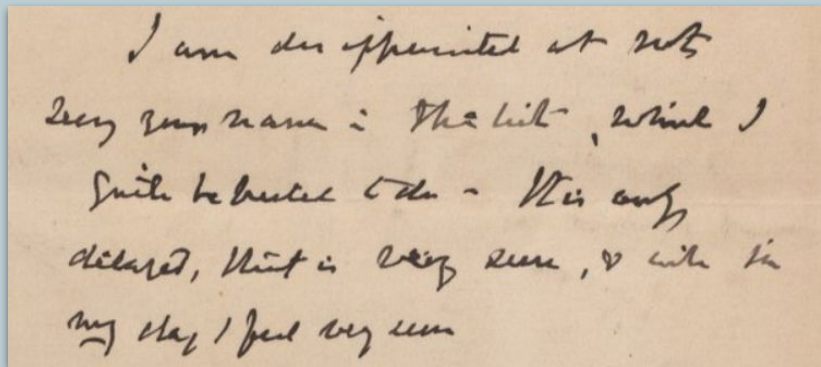 I am disappointed at not
seeing your name in the list, which I
quite expected to do - It is only
delayed, that is very sure, & will be in
my day I feel very sure